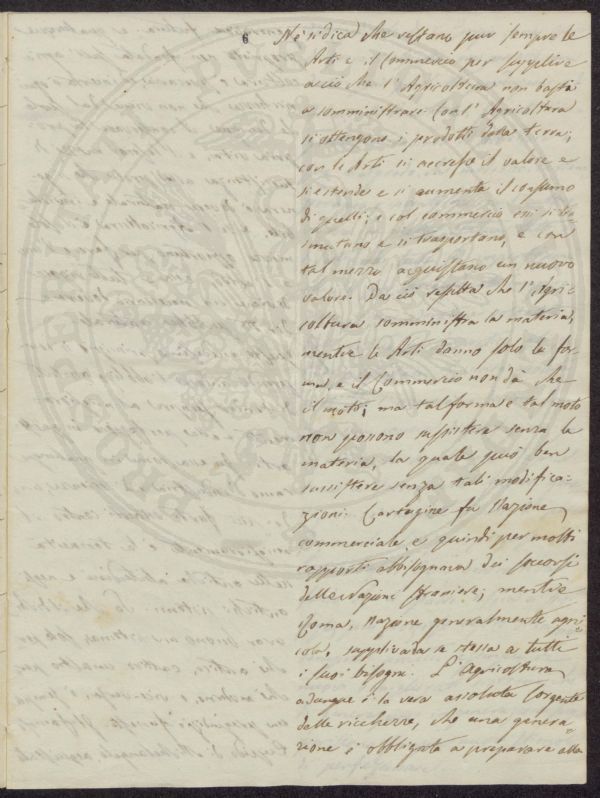 6
Nè si dica che restano pur sempre le
Arti e il Commercio per supplire
a ciò che l'Agricoltura non basta
a somministrare. Con l'Agricoltura
si ottengono i prodotti della terra;
con le Arti si accresce il valore e
si estende e si aumenta il consumo
di quelli; e col commercio essi si tra-
smutano e si trasportano, e con
tal mezzo acquistano un nuovo
valore. Da ciò resulta che l'Agri-
coltura somministra la materia,
mentre le Arti danno solo la for-
ma, e il Commercio non dà che
il moto; ma tal forma e tal moto
non possono sussistere senza la
materia, la quale può ben
sussistere senza tali modifica-
zioni. Cartagine fu Nazione
commerciale e quindi per molti
rapporti abbisognava dei soccorsi
delle Nazioni straniere; mentre
Roma, Nazione generalmente agri-
cola, suppliva da se stessa a tutti
i suoi bisogni. L'Agricoltura
adunque è la vera assoluta sorgente
delle ricchezze, che una genera-
zione è obbligata a preparare alla